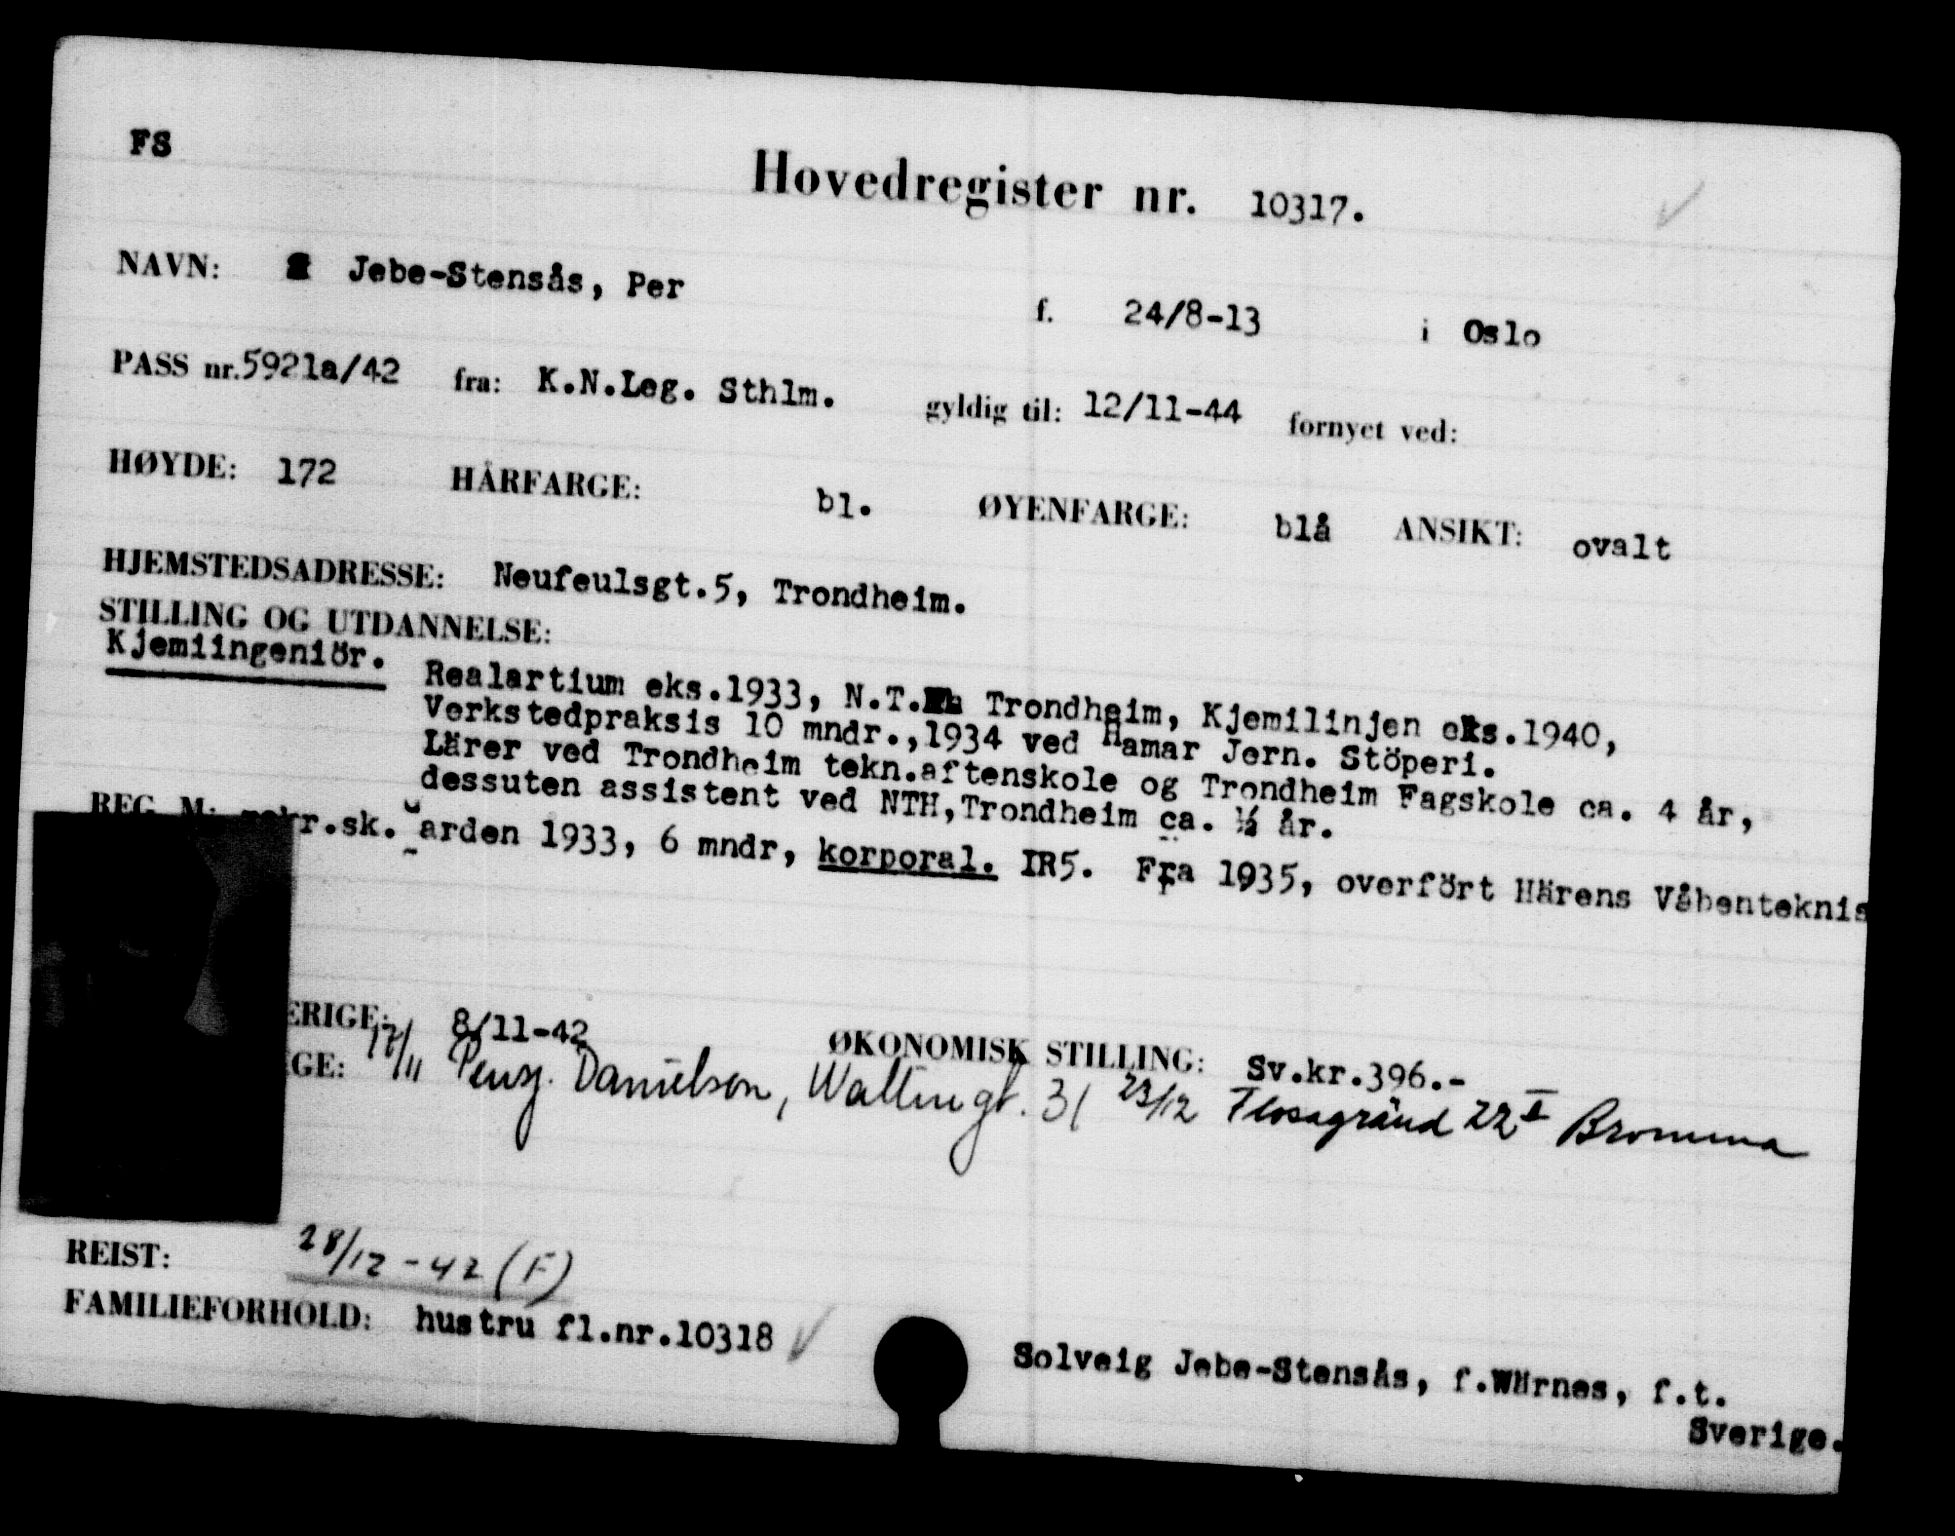 FS
Hovedregister nr. 10317.
NAVN: Jebe-Stensås, Per f. 24/8-13 i Oslo
PASS nr. 5921a/42 fra: K.N.Leg. Sthlm. gyldig til: 12/11-44 fornyet ved:
HØYDE: 172 HÅRFARGE: bl. ØYENFARGE: blå ANSIKT: ovalt
HJEMSTEDSADRESSE: Neufeulsgt.5, Trondheim.
STILLING OG UTDANNELSE:
Kjemiingeniör. Realartium eks.1933, N.T. Trondheim, Kjemilinjen eks.1940,
Verkstedpraksis 10 mndr.,1934 ved Hamar Jern. Stöperi.
Lärer ved Trondheim tekn.aftenskole og Trondheim Fagskole ca. 4 år,
dessuten assistent ved NTH,Trondheim ca. ½ år.
REG. M: rekr.sk. arden 1933, 6 mndr, korporal. IR5. Fra 1935, overfört Härens Våbenteknis
ERIGE: 8/11-42 ØKONOMISK STILLING: Sv.kr.396.-
GE: 17/11 Pensj. Danielson, Wallingt. 31 23/12 Flosagränd 22 I Bromma
REIST: 28/12-42 (F)
FAMILIEFORHOLD: hustru fl.nr.10318 Solveig Jebe-Stensås, f.Wärnes, f.t.
Sverige.